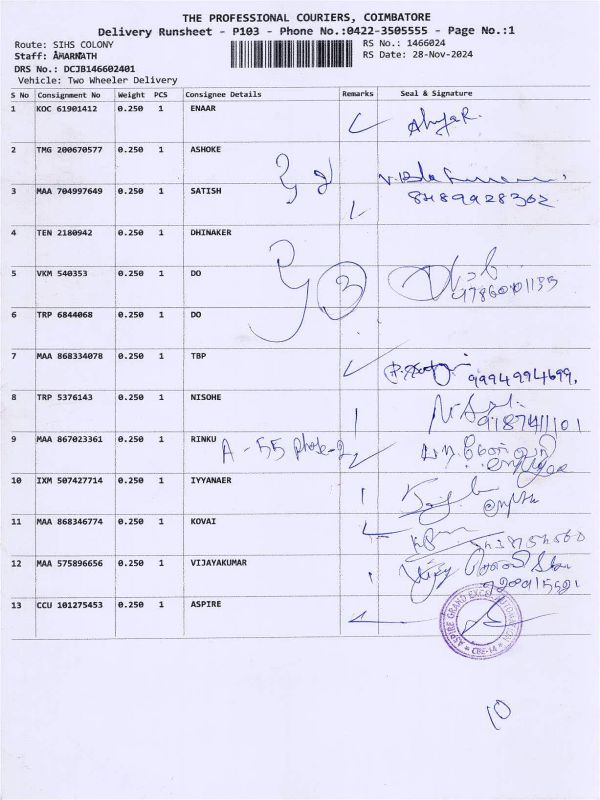 THE PROFESSIONAL COURIERS, COIMBATORE
Delivery Runsheet - P103 - Phone No.:0422-3505555 - Page No.:1
Route: SIHS COLONY
RS No.: 1466024
Staff: AMARNATH
RS Date: 28-Nov-2024
DRS No.: DCJB146602401
Vehicle: Two Wheeler Delivery
S No Consignment No Weight PCS Consignee Details Remarks Seal & Signature
1 KOC 61901412 0.250 1 ENAAR
2 TMG 200670577 0.250 1 ASHOKE
3 MAA 704997649 0.250 1 SATISH
8489928302
4 TEN 2180942 0.250 1 DHINAKER
5 VKM 540353 0.250 1 DO
3
6 TRP 6844068 0.250 1 DO
7 MAA 868334078 0.250 1 TBP
9994994699,
8 TRP 5376143 0.250 1 NISOHE
9187411101
9 MAA 867023361 0.250 1 RINKU A - 55 phase-2
10 IXM 507427714 0.250 1 IYYANAER
11 MAA 868346774 0.250 1 KOVAI
12 MAA 575896656 0.250 1 VIJAYAKUMAR
13 CCU 101275453 0.250 1 ASPIRE
CBE-14
10